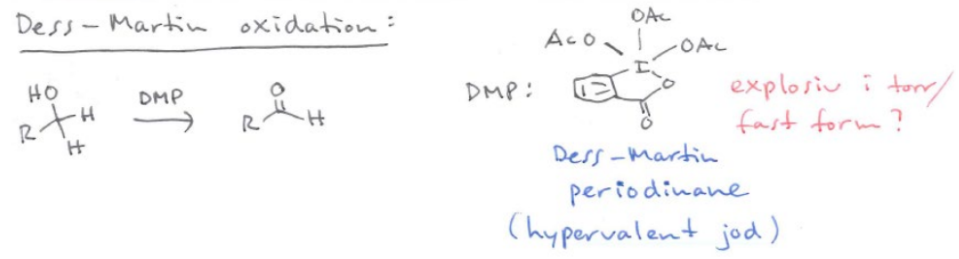 Dess-Martin oxidation:
HO
R
H
H
DMP
O
R
H
DMP:
OAc
AcO
OAc
I
O
O
explosiv i torr/
fast form?
Dess-Martin
periodinane
(hypervalent jod)